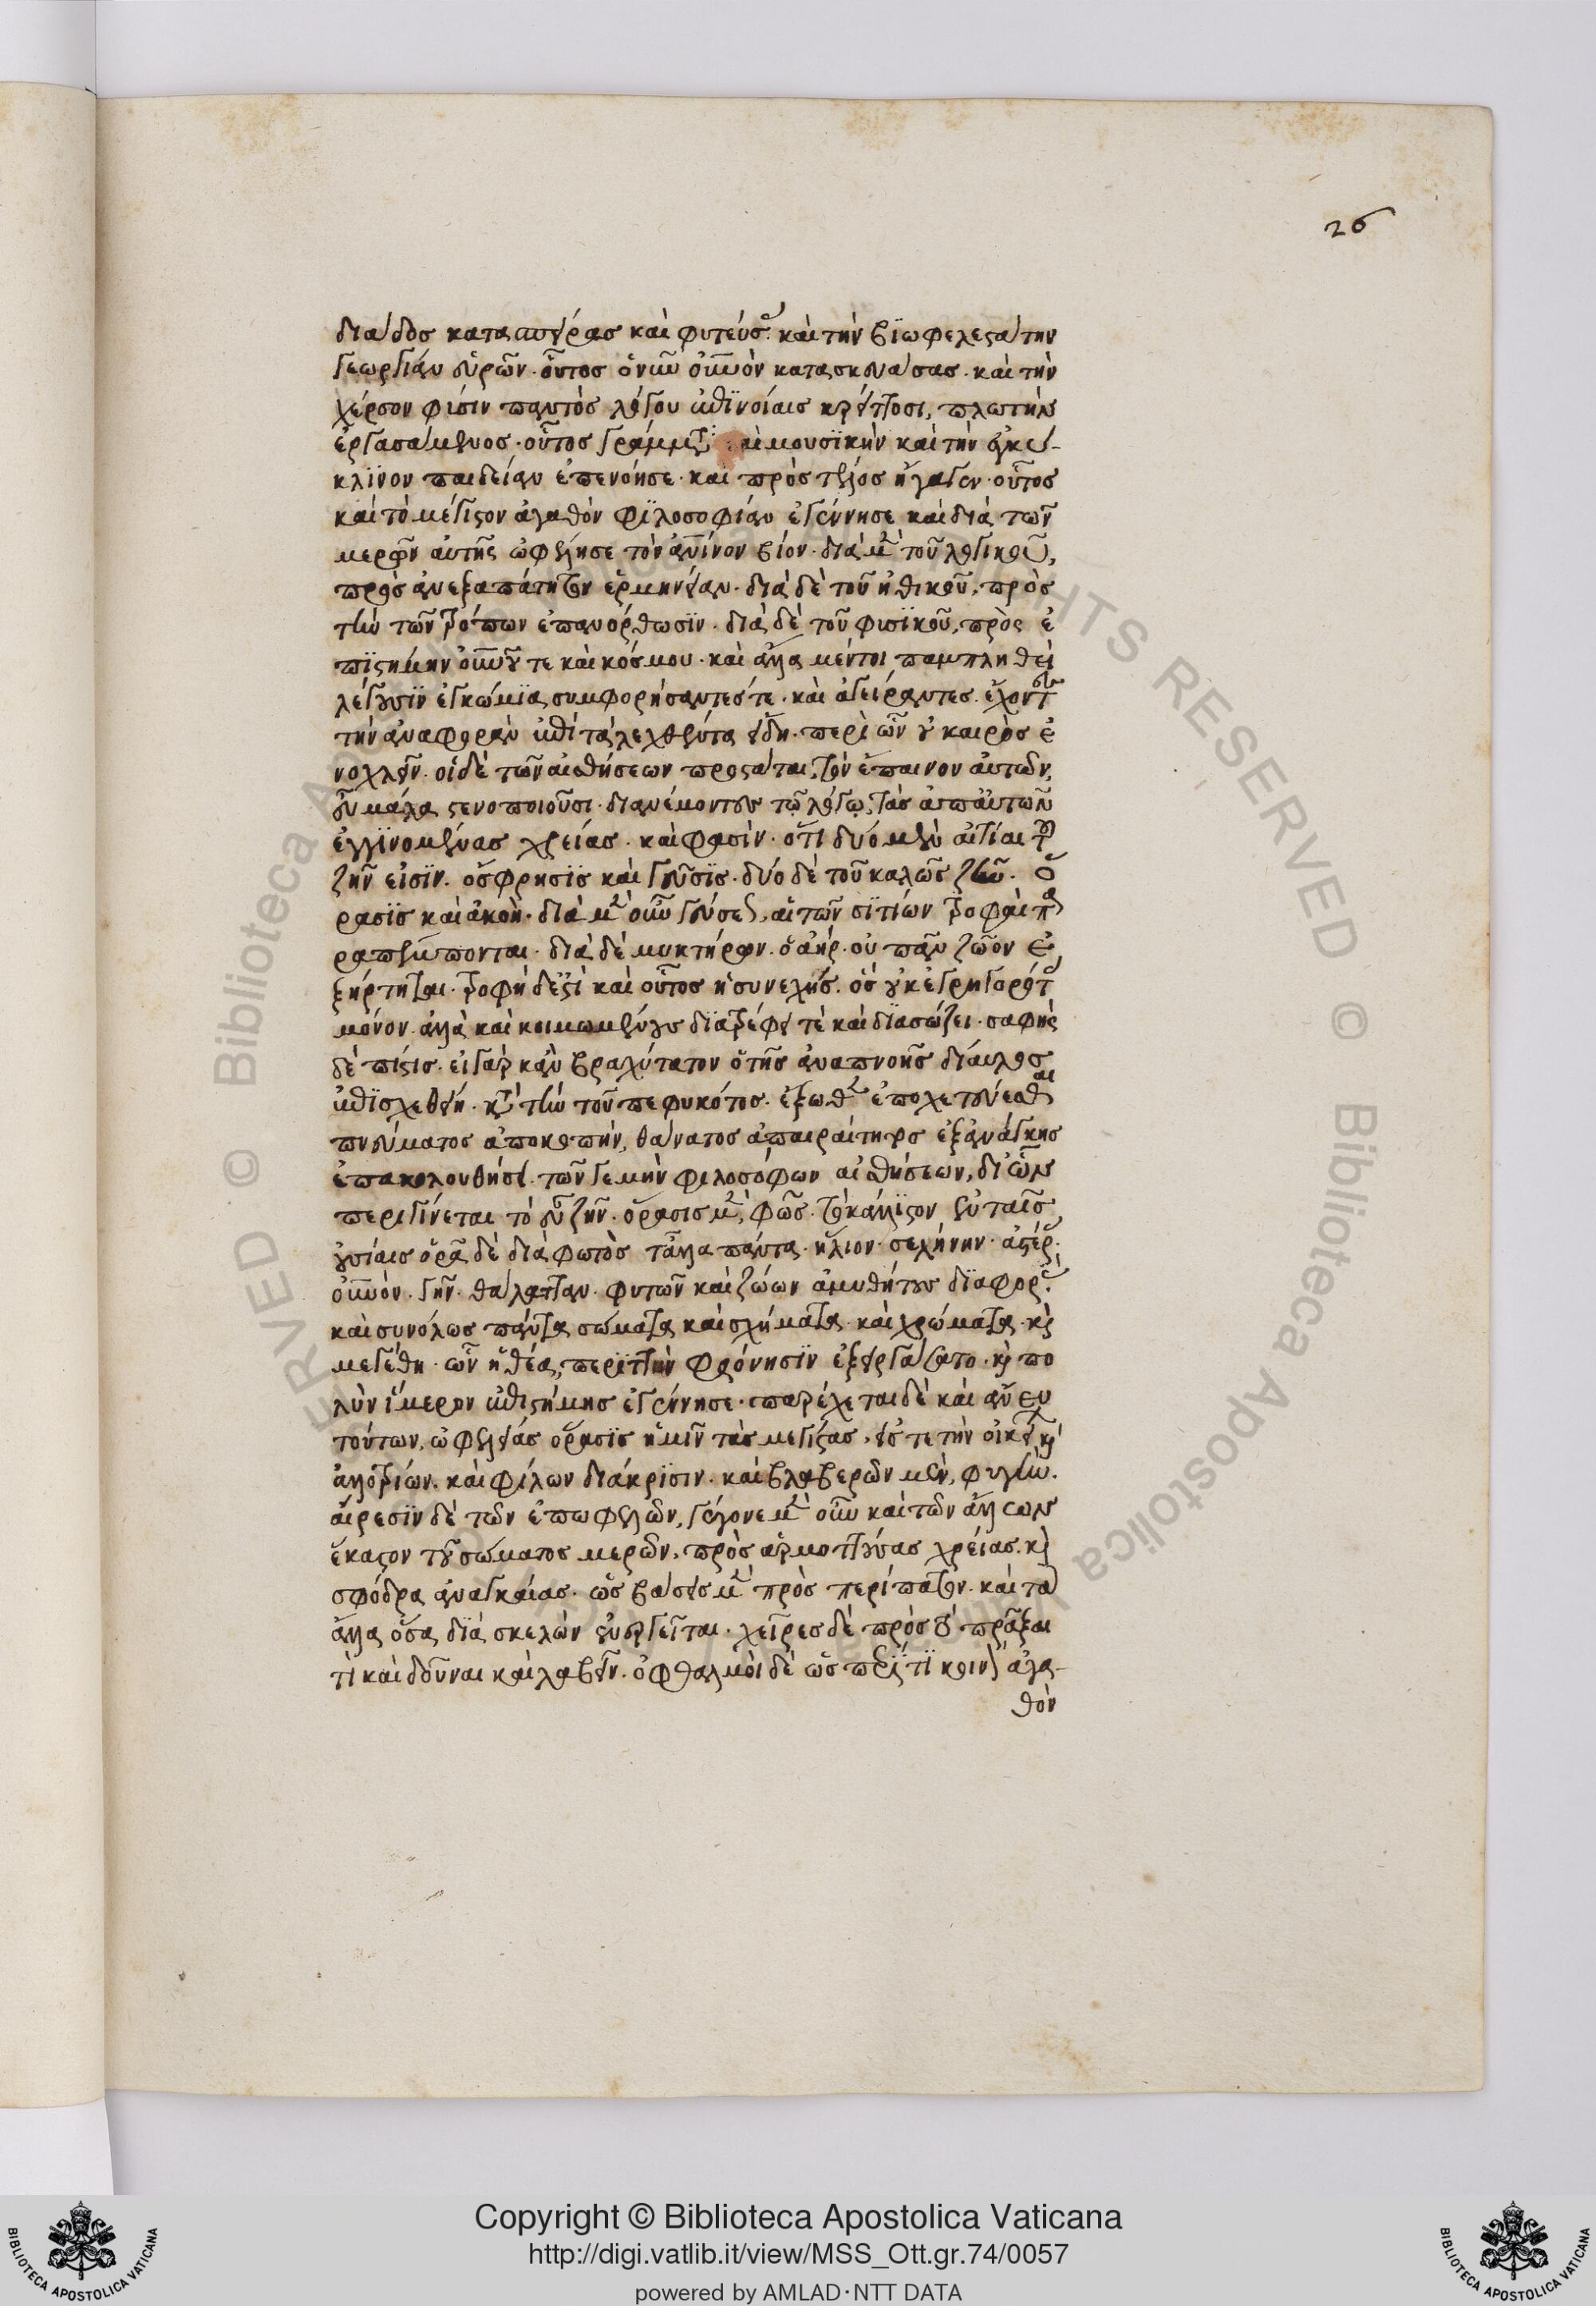 26
διάδος κατασπείρας καὶ φυτεύσας· καὶ τὴν βϊωφελεστάτην
γεωργίαν εὑρῶν· οὗτος ὁ ναῦν οὐρανὸν κατασκευάσας· καὶ τὴν
χέρσον φύσιν παντὸς λόγου ἐπϊνοίαις κρείττοσι, πλωτὴν
ἐργασάμενος· οὗτος γράμματα καὶ μουσϊκὴν καὶ τὴν ἐγκύ-
κλϊνον παιδείαν ἐπενόησε· καὶ πρὸς τέλος ἤγαγεν· οὗτος
καὶ τὸ μέγιστον ἀγαθὸν φϊλοσοφίαν ἐγέννησε καὶ διὰ τῶν
μερῶν αὐτῆς ὠφέλησε τὸν ἀνθρώπινον βίον· διὰ μὲν τοῦ λογικοῦ,
πρὸς ἀνεξαπάτητον ἑρμηνείαν· διὰ δὲ τοῦ ἠθικοῦ, πρὸς
τὴν τῶν τρόπων ἐπανόρθωσϊν· διὰ δὲ τοῦ φισϊκοῦ, πρὸς ἐ
πϊστήμην οὐρανοῦ τε καὶ κόσμου· καὶ ἄλλα μέντοι παμπληθεῖ
λέγουσϊν ἐγκώμϊα, συμφορήσαντες τε· καὶ ἀγείραντες· ἔχοντα
τὴν ἀναφορὰν ἐπὶ τὰ λεχθέντα εἴδη· περὶ ὧν οὐ καιρὸς ἐ
νοχλεῖν· οἱ δὲ τῶν αἰσθήσεων προστάται, τὸν ἔπαινον αὐτῶν,
εὖ μάλα σενοποιοῦσι· διανέμοντες τῷ λόγῳ, τὰς ἀπ' αὐτῶν
ἐγγϊνομένας χρείας· καὶ φασὶν· ὅτι δύο μὲν αἰτίαι τοῦ
ζῆν εἰσϊν· ὄσφρησϊς καὶ γεῦσϊς· δύο δὲ τοῦ καλῶς ζῆν· ὅ
ρασϊς καὶ ἀκοὴ· διὰ μὲν οὖν γεύσεως, αἱ τῶν σϊτίων τροφαὶ πα
ραπέμπονται· διὰ δὲ μυκτήρων· ὁ ἀὴρ· οὗ πᾶν ζῶον ἐ
ξήρτηται· τροφὴ δέ ἐστὶ καὶ οὗτος ἡ συνεχὴς· ὃς οὐκ ἐγρηγορότας
μόνον· ἀλλὰ καὶ κοιμωμένους δϊατρέφει τὲ καὶ δϊασώζει· σαφὴς
δὲ πίστις· εἰ γὰρ κἂν βραχύτατον ὁ τῆς ἀναπνοῆς δίαυλος
ἐπϊσχεθείη· κατὰ τὴν τοῦ πεφυκότος· ἔξωθεν ἐποχετεύεσθαι
πνεύματος ἀποκοπὴν, θάνατος ἀπαραίτητος ἐξ ἀνάγκης
ἐπακολουθήσει· τῶν γε μὴν φιλοσόφων αἰσθήσεων, δι' ὧν
περιγίνεται τὸ εὖ ζῆν· ὅρασις μὲν, φῶς· τὸ κάλλϊστον ἐν ταῖς
οὐσίαις ὁρᾶ δὲ διὰ φωτὸς τἄλλα πάντα· ἥλιον· σελήνην· ἀστέρας·
οὐρανὸν· γῆν· θάλατταν· φυτῶν καὶ ζώων ἀμυθήτους δϊαφοράς·
καὶ συνόλως πάντα σώματα καὶ σχήματα· καὶ χρώματα· καὶ
μεγέθη· ὧν ἡ θέα, περϊττὴν φρόνησϊν ἐξειργάσατο· καὶ πο
λὺν ἵμερον ἐπιστήμης ἐγέννησε· παρέχεται δὲ καὶ ἄνευ
τούτων, ὠφελείας ὅρασϊς ἡμῖν τὰς μεγίστας, εἴς τε τὴν οἰκείων καὶ
ἀλλοτρίων· καὶ φίλων διάκρϊσιν· καὶ βλαβερῶν μὲν, φυγὴν·
αἵρεσϊν δὲ τῶν ἐπωφελῶν, γέγονε μὲν οὖν καὶ τῶν ἄλλων
ἕκαστον τοῦ σώματος μερῶν, πρὸς ἁρμοττούσας χρείας· καὶ
σφόδρα ἀναγκαίας· ὡς βάσεις μὲν πρὸς περίπατον· καὶ τὰ
ἄλλα ὅσα δϊὰ σκελῶν ἐνεργεῖται· χεῖρες δὲ πρὸς τὸ πρᾶξαι
τὶ καὶ δοῦναι καὶ λαβεῖν· ὀφθαλμοὶ δὲ ὥσπερ τϊ κοινὸν ἀγα-
θὸν
Copyright © Biblioteca Apostolica Vaticana
http://digi.vatlib.it/view/MSS_Ott.gr.74/0057
powered by AMLAD·NTT DATA